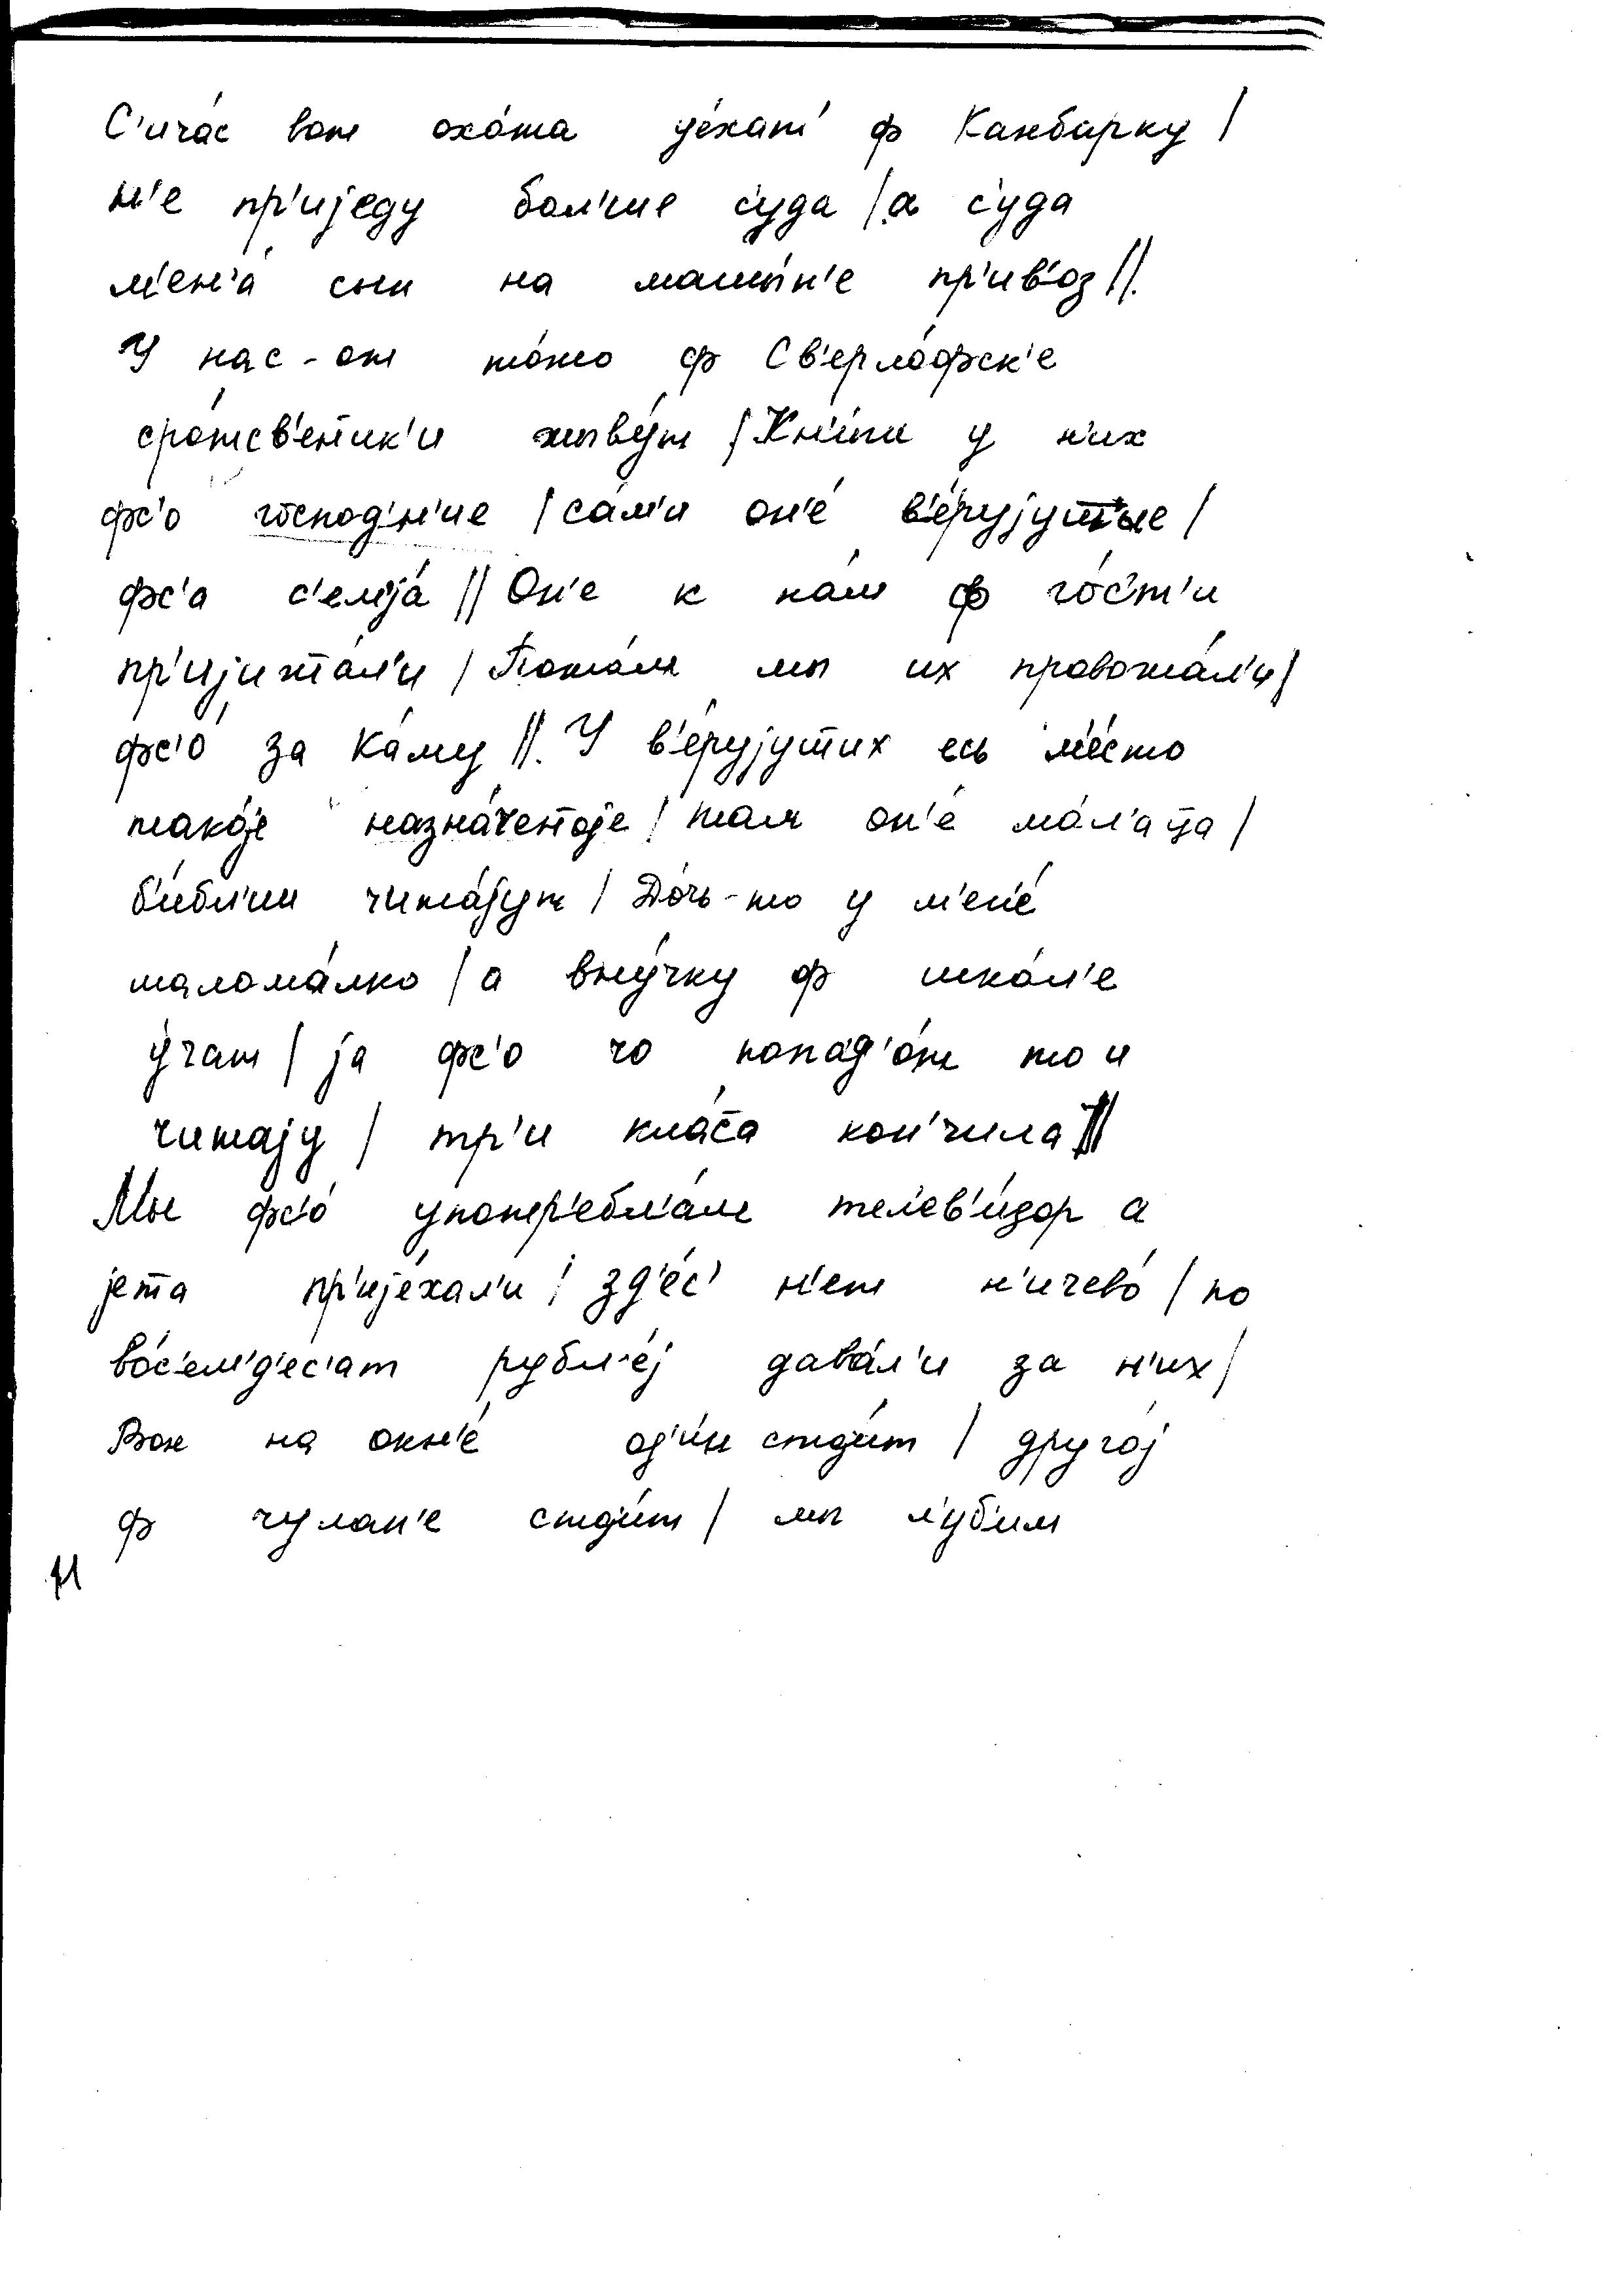 С'ича́с вот охо́та уjе́хат' ф Канбарку |
н'е пр'иjеду бол'ше с'уда | а с'уда
м'ен'а́ сын на машы́н'е пр'ив'о́з ||.
У нас-от то́то ф Св'ерло́фск'е
сро́тсв'ен̄ик'и жыву́т | Кн'и́ги у н'их
фс'о госпо́дн'ие | са́м'и он'е́ в'е́руjуш̄ые |
фс'а с'емjа́ || Он'е к нам ф го́с'т'и
пр'иjиж̄а́л'и | Пото́м мы их провожа́л'и |
фс'о́ за Ка́му ||. У в'е́руjуш̄их есь м'е́сто
тако́jе назна́чен̄оjе | там он'е́ мо́л'аца |
б'и́бл'ии чита́jут | До́чь-то у м'ен'е́
маломалко | а вну́чку ф шко́л'е
у́чат | jа фс'о чо попад'о́т то и
читаjу | тр'и кла́с̄а кон'чила ||
Мы фс'о́ употр'ебл'а́ли телев'и́зор а
jет̄а пр'иjе́хал'и | зд'е́с' н'ет н'ичево́ | по
во́с'ем'д'ес'ат рубл'е́j дава́л'и за н'их |
Вон на окн'е́ од'и́н стои́т | друго́j
ф чулан'е стои́т | мы л'у́б'им